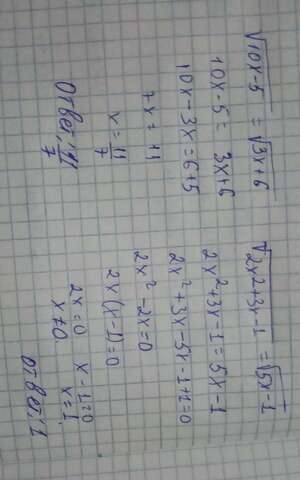 √10x-5 = √3x+6
10x-5 = 3x+6
10x-3x=6+5
7x = 11
x = 11/7
Ответ: 11/7
√2x²+3x-1 = √5x-1
2x²+3x-1=5x-1
2x²+3x-5x-1+1=0
2x²-2x=0
2x(x-1)=0
2x=0 x-1=0
x≠0 x=1
Ответ: 1